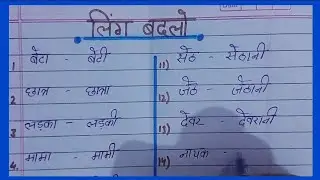 लिंग बदलो
1. बेटा - बेटी
2. छात्र - छात्रा
3. लड़का - लड़की
4. मामा - मामी
11) सेठ - सेठानी
12) जेठ - जेठानी
13) देवर - देवरानी
14) नायक -